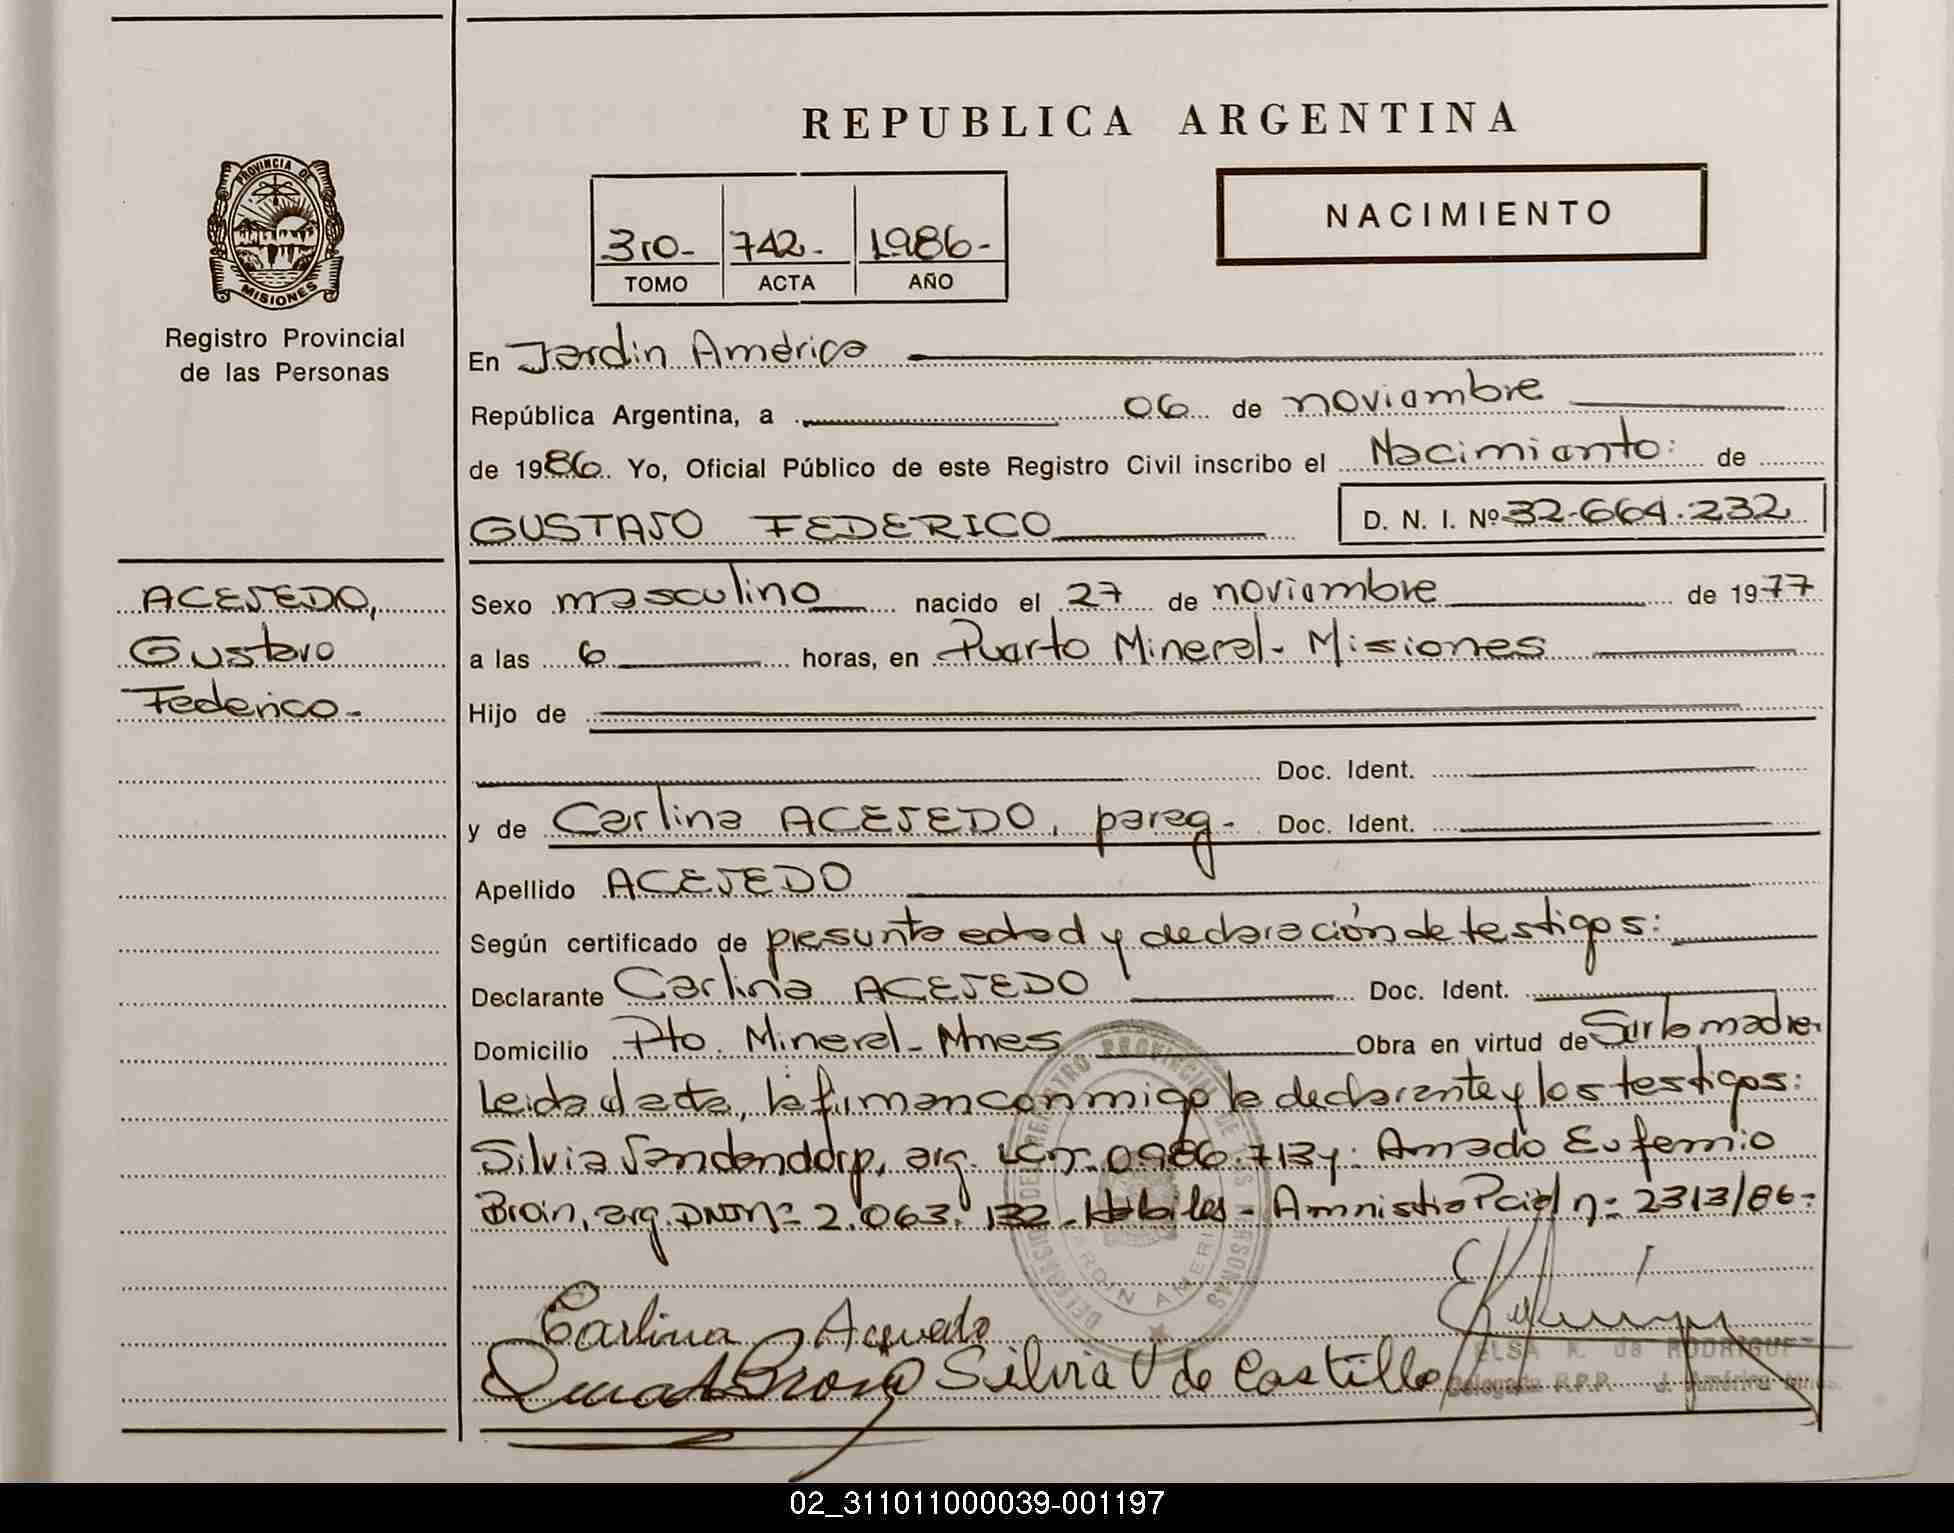 REPUBLICA ARGENTINA
PROVINCIA DE MISIONES
Registro Provincial
de las Personas
3ro- 742- 1986-
TOMO ACTA AÑO
NACIMIENTO
En Jardin América
República Argentina, a 06 de noviembre
de 1986. Yo, Oficial Público de este Registro Civil inscribo el Nacimiento: de
GUSTAVO FEDERICO D. N. I. Nº 32.664.232
ACEVEDO,
Gustavo
Federico-
Sexo masculino nacido el 27 de noviembre de 1977
a las 6 horas, en Puerto Mineral- Misiones
Hijo de
Doc. Ident.
y de Carlina ACEVEDO, parag- Doc. Ident.
Apellido ACEVEDO
Según certificado de presunta edad y declaración de testigos:
Declarante Carlina ACEVEDO Doc. Ident.
Domicilio Pto. Mineral- Mnes Obra en virtud de Ser la madre.
Leida el acta, la firman conmigo la declarante y los testigos:
Silvia Vandendorp, arg. 0.986.713 y: Amado Eufemio
Broin, arg. DNI nº 2.063.132- Hábiles- Amnistia Pcial nº 2313/86-
DELEGACION DEL REGISTRO PROVINCIAL DE LAS PERSONAS
JARDIN AMERICA
Carlina Acevedo
Silvia V de Castillo
ELSA K. DE RODRIGUEZ
Delegada R.P.P. J. América Mnes.
02_311011000039-001197